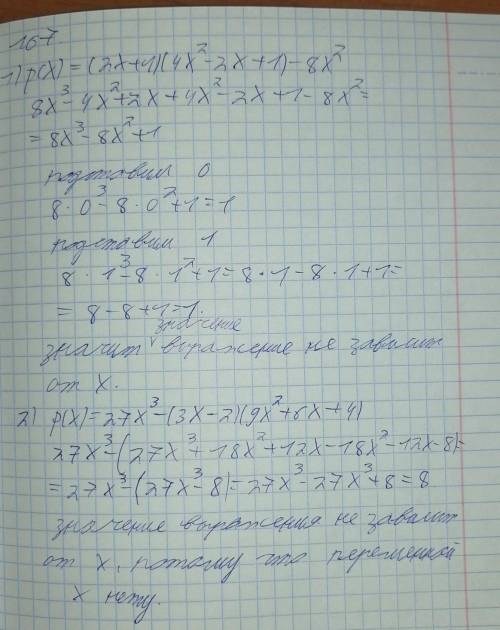 167.
1) p(x) = (2x+1)(4x²-2x+1)-8x²
8x³-4x²+2x+4x²-2x+1-8x²=
= 8x³-8x²+1
подставим 0
8·0³-8·0²+1=1
подставим 1
8·1³-8·1²+1=8·1-8·1+1=
= 8-8+1=1.
значение
значит выражение не зависит
от x.
2) p(x)=27x³-(3x-2)(9x²+6x+4)
27x³-(27x³+18x²+12x-18x²-12x-8)=
=27x³-(27x³-8)=27x³-27x³+8=8
значение выражения не зависит
от x, потому что переменной
x нету.